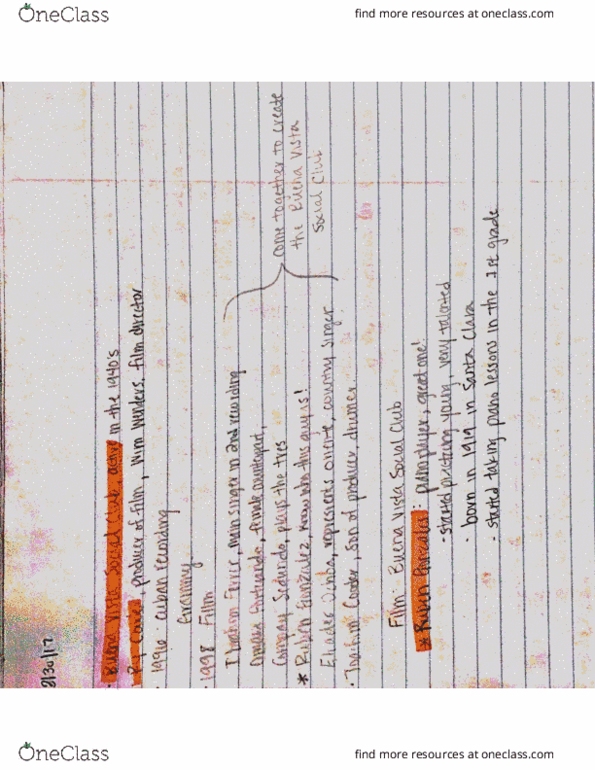 OneClass
find more resources at oneclass.com
8/30/17
· Buena Vista Social Club, active in the 1940's
· Ry Cooder, producer of film, Wim Wenders, film director
· 1996 cuban recording
Grammy
· 1998 Film
Ibrahim Ferrer, main singer in 2nd recording
Omara Portuondo, female counterpart,
Compay Segundo, plays the tres
* Ruben González, know who this guy is!
Eliades Ochoa, represents oriente, country singer
come together to create
the Buena Vista
Social Club
· Joachim Cooder, son of producer, drummer
Film: Buena Vista Social Club
* Ruben Gonzalez: piano player, great one!
· started practicing young, very talented
· born in 1919 in Santa Clara
· started taking piano lessons in the 1st grade
OneClass
find more resources at oneclass.com